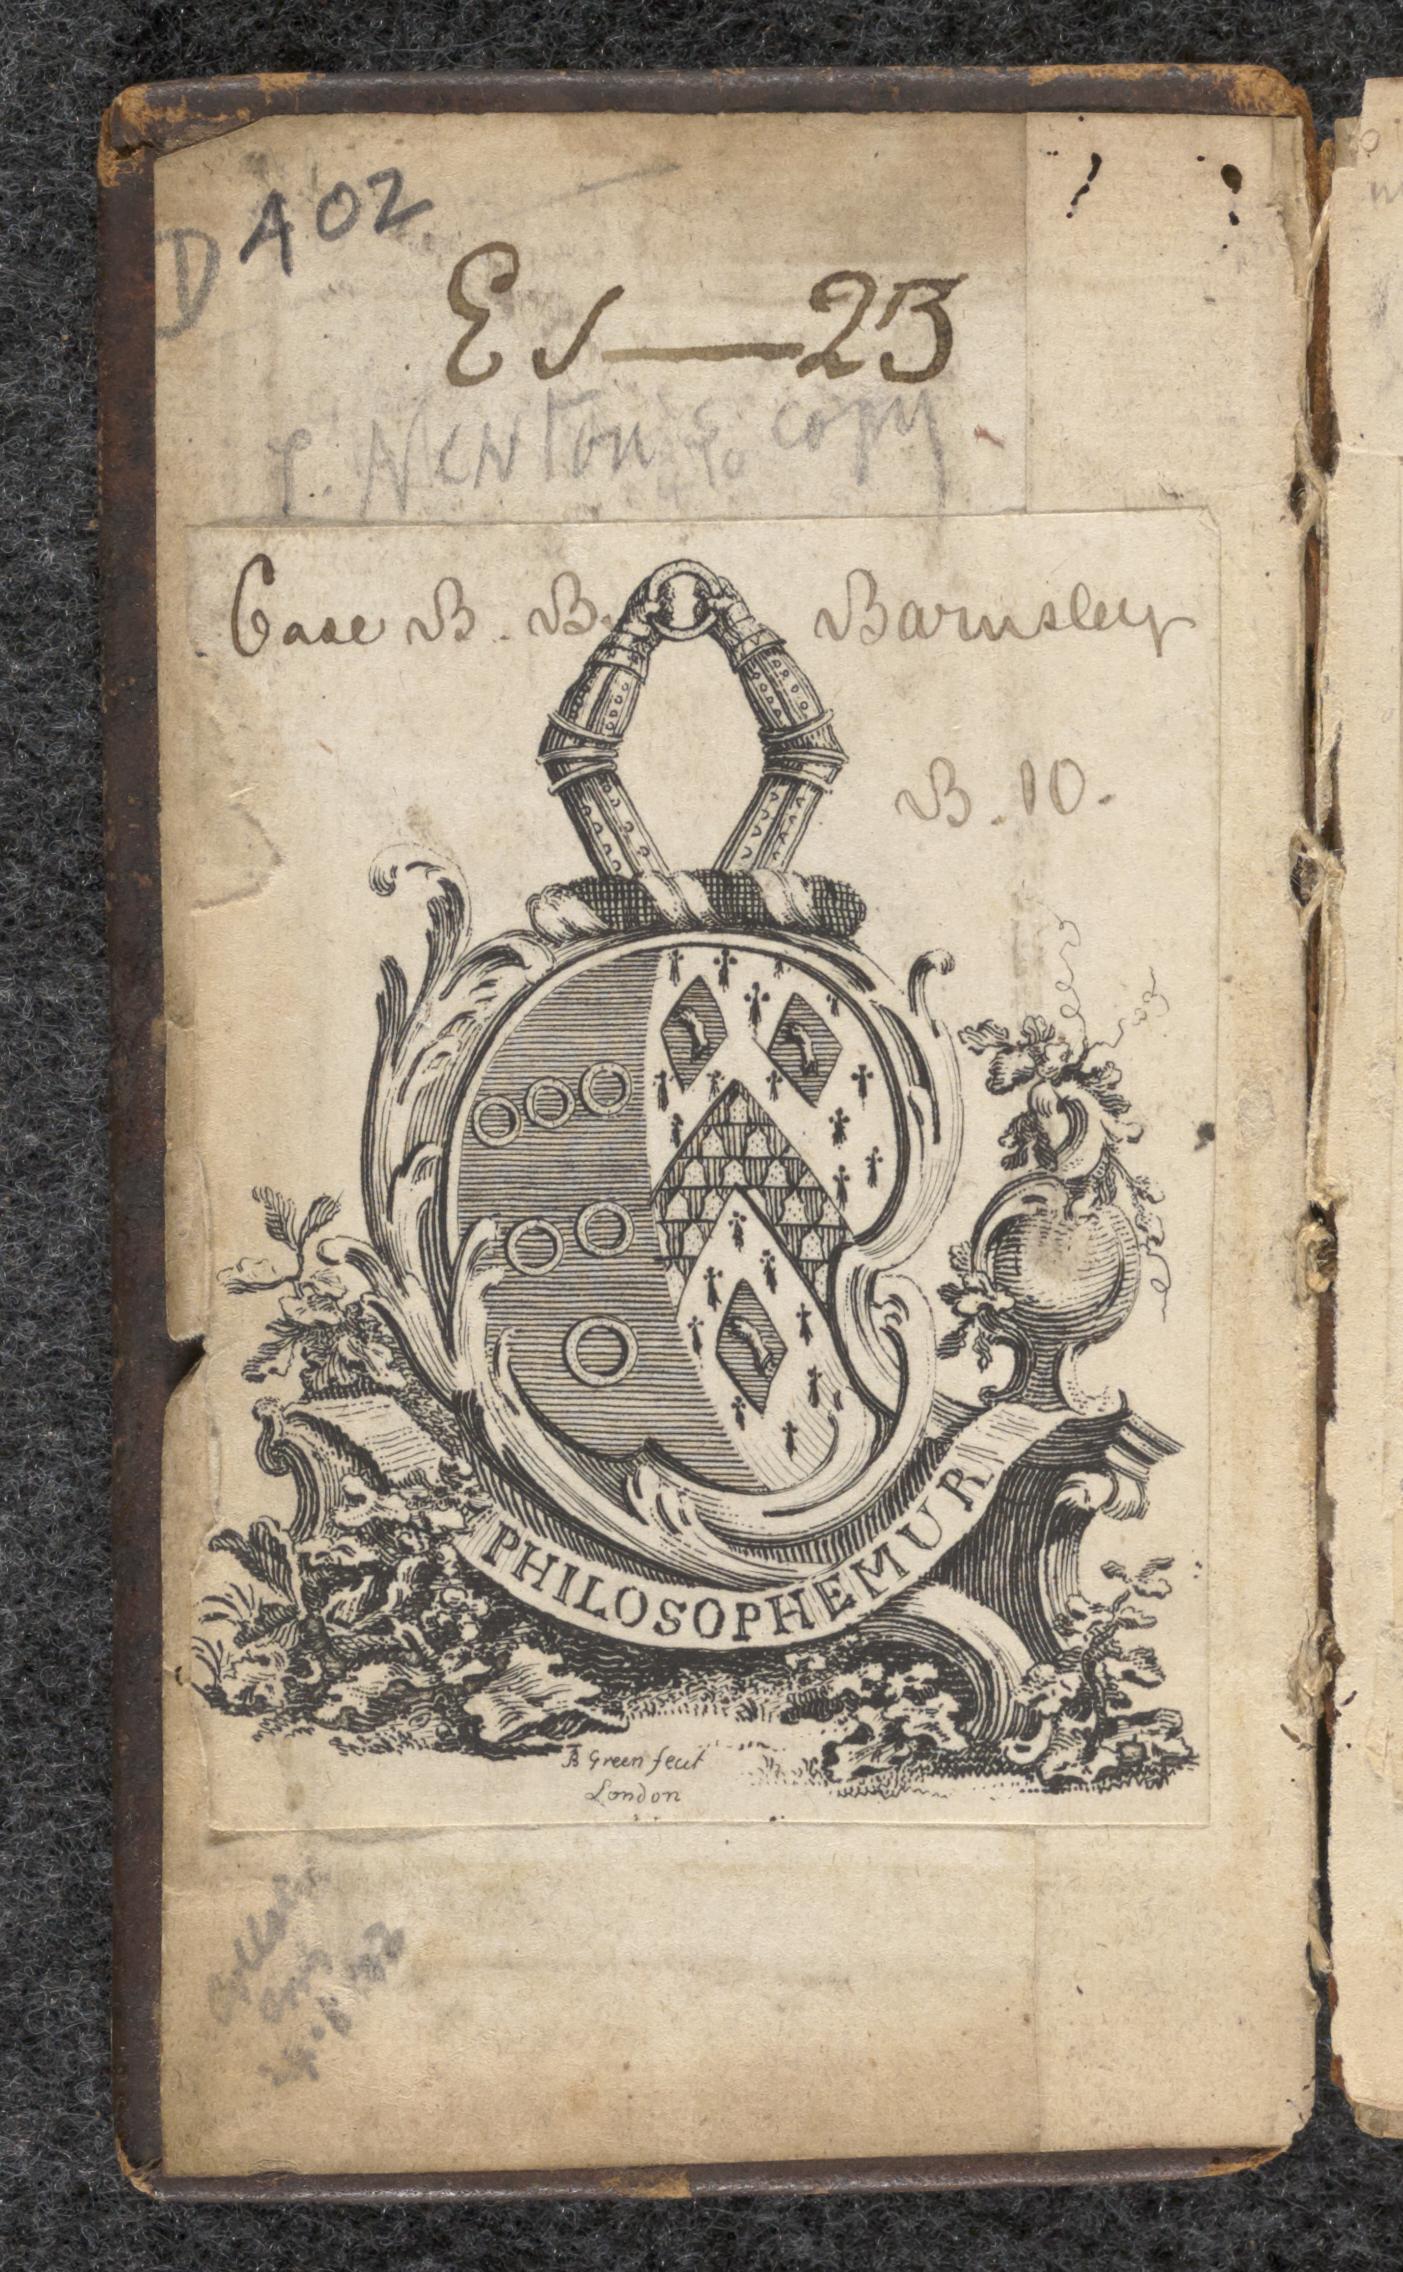 D 402
Es—23
I. Newton's copy
Case B. B. Barnsley
B. 10.
PHILOSOPHEMUR
B Green fecit
London